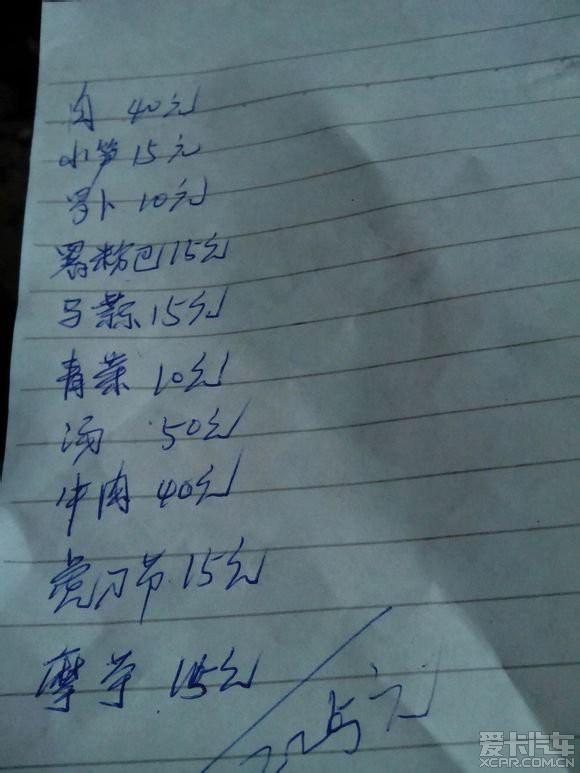 40元
小笋 15元
罗卜 10元
粉巴 15元
15元
青菜 10元
汤 50元
牛肉 40元
15元
15元
225元
爱卡汽车
XCAR.COM.CN